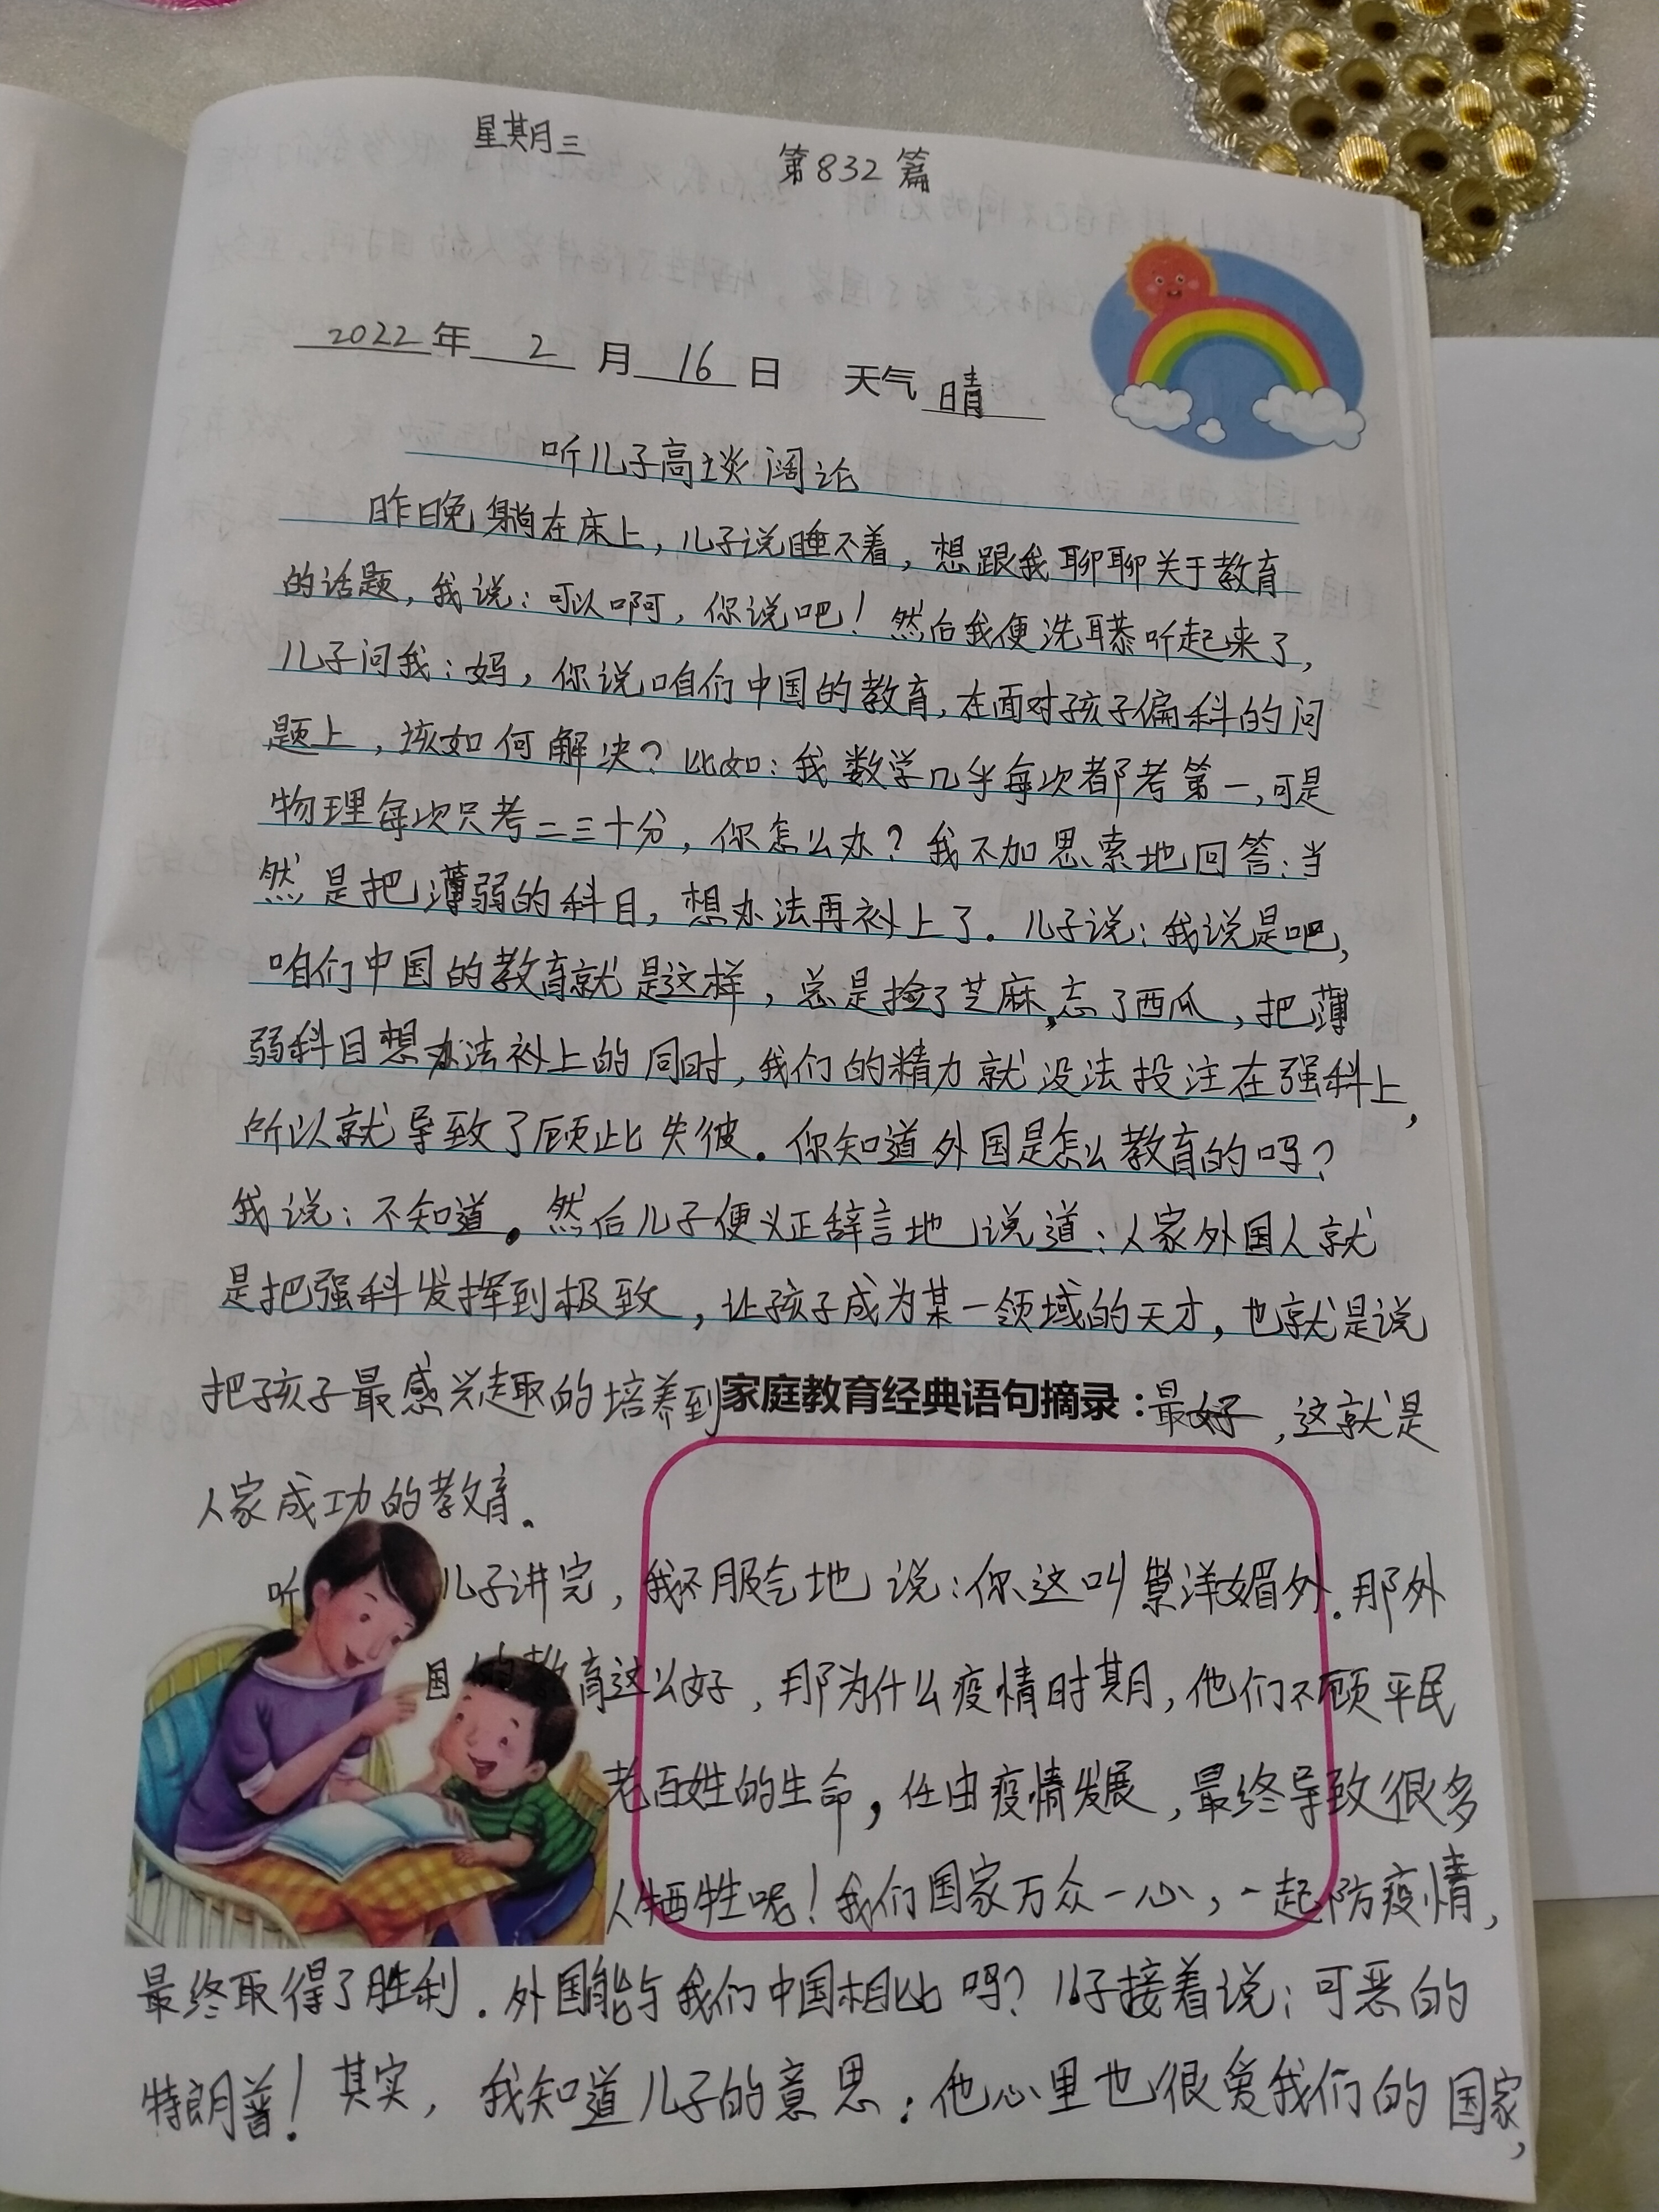 星期三
第832篇
2022年 2 月 16 日 天气 晴
听儿子高谈阔论
昨晚躺在床上，儿子说睡不着，想跟我聊聊关于教育
的话题，我说：可以啊，你说吧！然后我便洗耳恭听起来了，
儿子问我：妈，你说咱们中国的教育，在面对孩子偏科的问
题上，该如何解决？比如：我数学几乎每次都考第一，可是
物理每次只考二三十分，你怎么办？我不加思索地回答：当
然是把薄弱的科目，想办法再补上了．儿子说：我说是吧，
咱们中国的教育就是这样，总是捡了芝麻，忘了西瓜，把薄
弱科目想办法补上的同时，我们的精力就没法投注在强科上，
所以就导致了顾此失彼．你知道外国是怎么教育的吗？
我说：不知道。然后儿子便义正辞言地说道：人家外国人就
是把强科发挥到极致，让孩子成为某一领域的天才，也就是说
把孩子最感兴趣的培养到家庭教育经典语句摘录：最好，这就是
人家成功的教育．
听儿子讲完，我不服气地说：你这叫崇洋媚外．那外
国的教育这么好，那为什么疫情时期，他们不顾平民
老百姓的生命，任由疫情发展，最终导致很多
人牺牲呢！我们国家万众一心，一起防疫情，
最终取得了胜利．外国能与我们中国相比吗？儿子接着说：可恶的
特朗普！其实，我知道儿子的意思：他心里也很爱我们的国家，